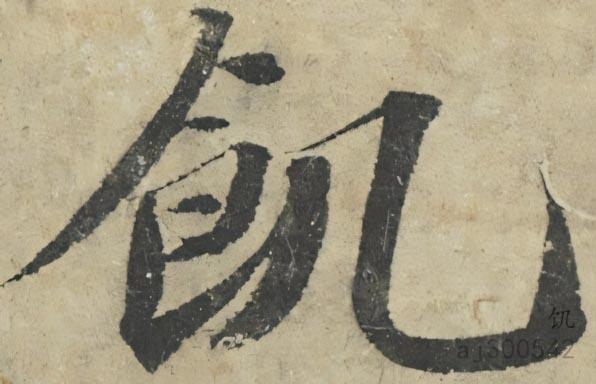 飢
饥
aj300542